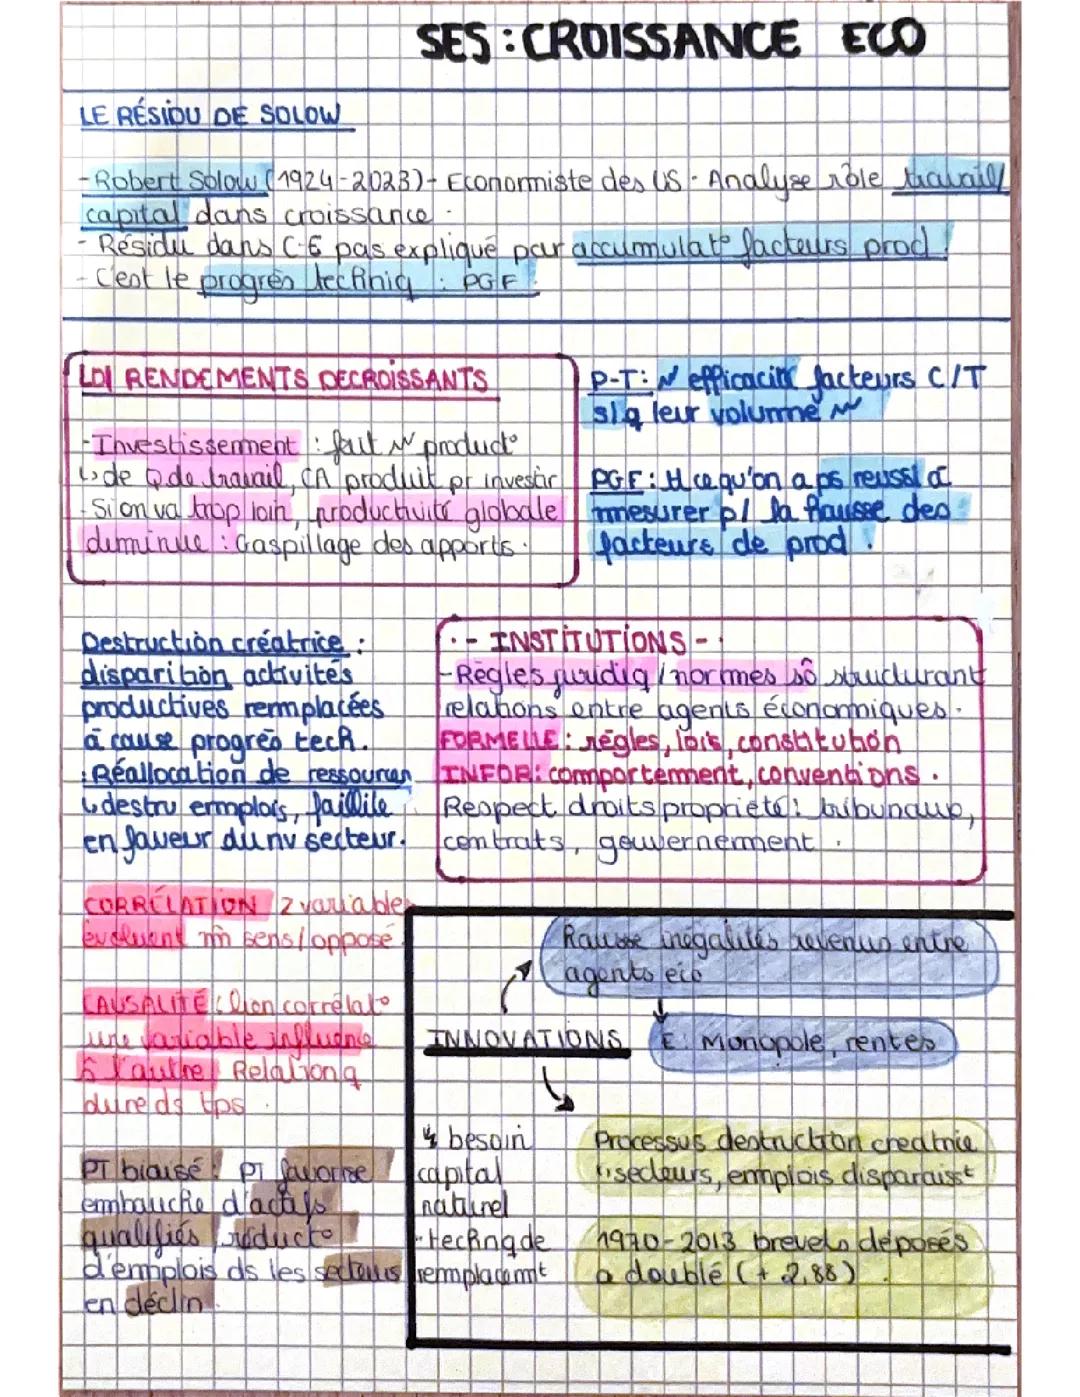 SES : CROISSANCE ECO
LE RÉSIDU DE SOLOW
- Robert Solow (1924-2023) - Economiste des US. Analyse rôle travail/
capital dans croissance.
- Résidu dans C-E pas expliqué par accumulat° facteurs prod.
- C'est le progrès techniq : PGF.
LOI RENDEMENTS DECROISSANTS
- Investissement : fait ↗ product°
↳ de Q de travail, CA produit pr investir
- Si on va trop loin, productivité globale
diminue : Gaspillage des apports.
P-T : ↗ efficacité facteurs C/T
s/q leur volume ↗
PGF : tt ce qu'on a ps reussi à
mesurer p/ la hausse des
facteurs de prod.
Destruction créatrice :
disparition activités
productives remplacées
à cause progrès tech.
: Réallocation de ressources
↳ destru emplois, faillite
en faveur du nv secteur.
- INSTITUTIONS -
- Règles juridiq / normes sô structurant
relations entre agents économiques.
FORMELLE : règles, lois, constitution
INFOR : comportement, conventions.
Respect droits propriété : tribunaux,
contrats, gouvernement.
CORRÉLATION 2 variables
évoluent m̂ sens / opposé.
CAUSALITÉ : lien corrélat°
une variable influence
à l'autre. Relation q
dure ds tps.
PT biaisé : PT favorise
embauche d'actifs
qualifiés, réduct°
d'emplois ds les secteurs
en déclin.
Hausse inégalités revenus entre
agents éco
INNOVATIONS
E : Monopole, rentes
↯ besoin
capital
naturel
- technq de
remplacemt
Processus destruction creatrice
: secteurs, emplois disparaisst
1970-2013 brevets déposés
a doublé (+ 2,88).